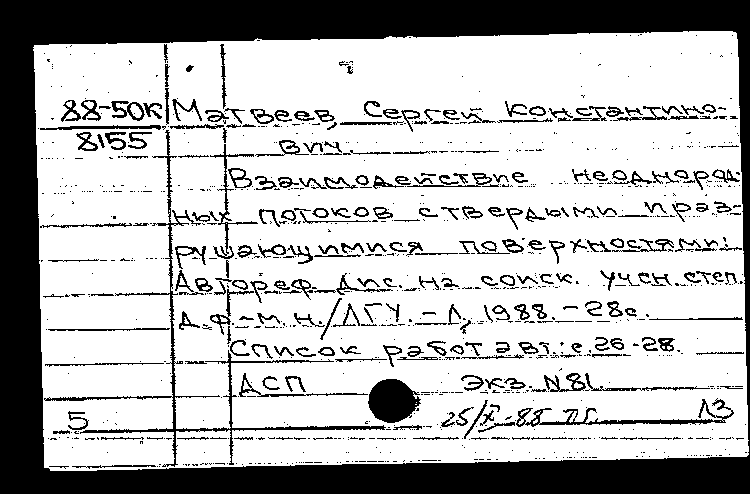 88-50к Матвеев, Сергей Константино-
8155 вич.
Взаимодействие неоднород-
ных потоков с твердыми и раз-
рушающимися поверхностями:
Автореф. дис. на соиск. учен. степ.
д. ф-м. н. /ЛГУ. - Л, 1988. - 28с.
Список работ авт: с. 26-28.
ДСП экз. N 81.
5 25/ -88 ЛЗ